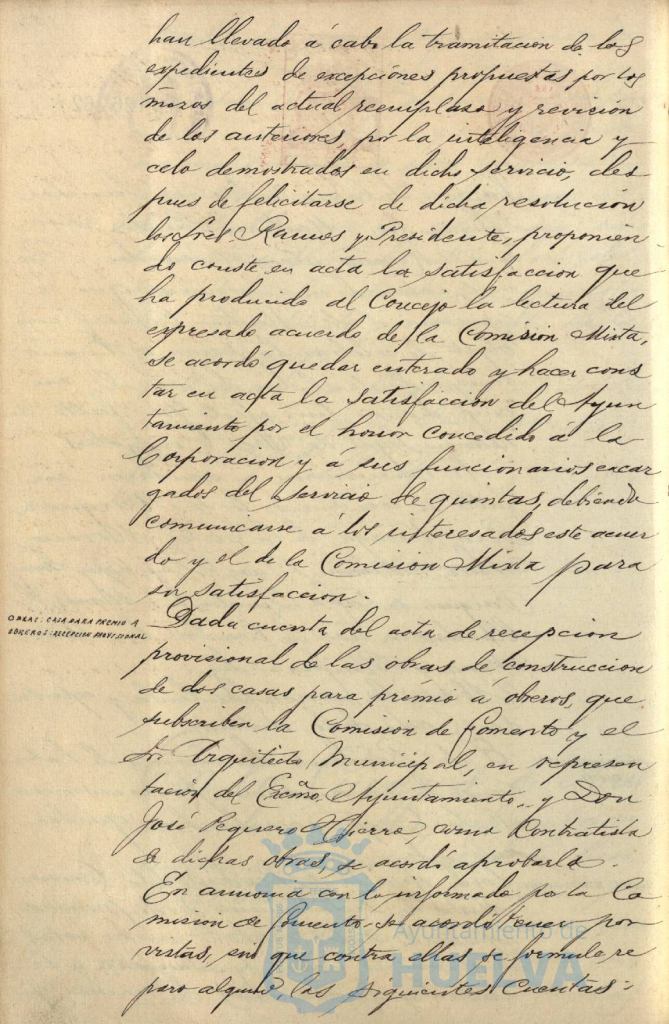 han llevado á cabo la tramitacion de los
expedientes de excepciones propuestas por los
mozos del actual reemplazo y revision
de los anteriores, por la inteligencia y
celo demostrados en dicho servicio, des
pues de felicitarse de dicha resolucion
los Sres. Ramos y Presidente, proponien
do conste en acta la satisfaccion que
ha producido al Concejo la lectura del
expresado acuerdo de la Comision Mixta,
se acordó quedar enterado y hacer cons
tar en acta la satisfaccion del Ayun
tamiento por el honor concedido á la
Corporacion y á sus funcionarios encar
gados del servicio de quintas, debiendo
comunicarse á los interesados este acuer
do y el de la Comision Mixta para
su satisfaccion.
OBRAS: CASA PARA PREMIO A
OBREROS: RECEPCION PROVISIONAL
Dada cuenta del acta de recepcion
provisional de las obras de construccion
de dos casas para premio á obreros, que
subscriben la Comision de Fomento y el
Sr. Arquitecto Municipal, en represen
tacion del Excmo. Ayuntamiento, y Don
José Peguero Hierro, como Contratista
de dichas obras, se acordó aprobarla.
En armonia con lo informado por la Co
mision de Fomento se acordó tener por
vistas, sin que contra ellas se formule re
paro alguno las siguientes cuentas:
Ayuntamiento de
HUELVA